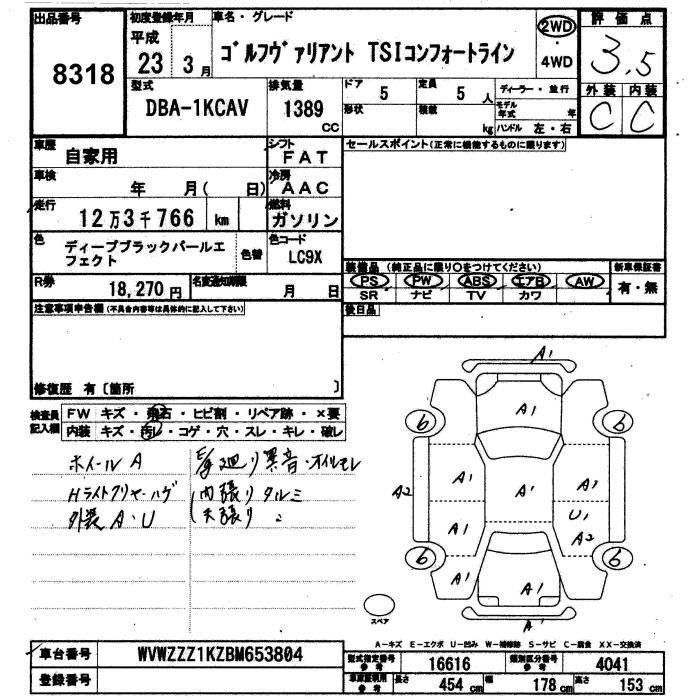 出品番号 8318
初度登録年月 平成 23 3月
車名・グレード
ゴルフヴァリアント TSIコンフォートライン
2WD・4WD
評価点 3.5
型式 DBA-1KCAV
排気量 1389 CC
ドア 5
形状
定員 5 人
積載 kg
ディーラー・並行
モデル年式 年
ハンドル 左・右
外装 C
内装 C
車歴 自家用
シフト FAT
セールスポイント(正常に機能するものに限ります)
車検 年 月( 日)
冷房 AAC
走行 12万3千766 km
燃料 ガソリン
色 ディープブラックパールエフェクト
色替
色コード LC9X
R券 18,270円
名変通知期限 月 日
装備品 (純正品に限り○をつけてください)
新車保証書 有・無
PS PW ABS エアB AW
SR ナビ TV カワ
後日品
注意事項申告欄(不具合内容等は具体的に記入して下さい)
修復歴 有〔箇所 〕
検査員記入欄
FW キズ・飛石・ヒビ割・リペア跡・×要
内装 キズ・汚レ・コゲ・穴・スレ・キレ・破レ
ホイールA
Hライトクリヤーハゲ
外装A・U
E/g廻り異音・オイルモレ
内張りタルミ
天張り 〃
A1
A1
6 6
A1 A1 A1
A2
A1 U1 A2
6 6
A1 A1 A1
A1
スペア
A-キズ E-エクボ U-凹み W-補修跡 S-サビ C-腐食 XX-交換済
車台番号 WVWZZZ1KZBM653804
登録番号
型式指定番号 参考 16616
類別区分番号 参考 4041
車庫証明用 参考 長さ 454 cm 幅 178 cm 高さ 153 cm